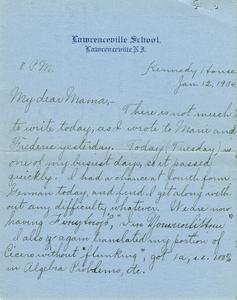 Lawrenceville School,
Lawrenceville N.J.
8 P.M.
Kennedy House
Jan. 12, 190
My dear Mama,-
There is not much
to write today, as I wrote to Marie and
Frederic yesterday. Today (Tuesday) is
one of my busiest days, so it passed
quickly. I had a chance at fourth form
German today, and find I get along with-
out any difficulty whatever. We are now
having
I also again translated my portion of
Cicero without "flunking", got 1a, i.e. 100%
in Algebra Problems, etc.